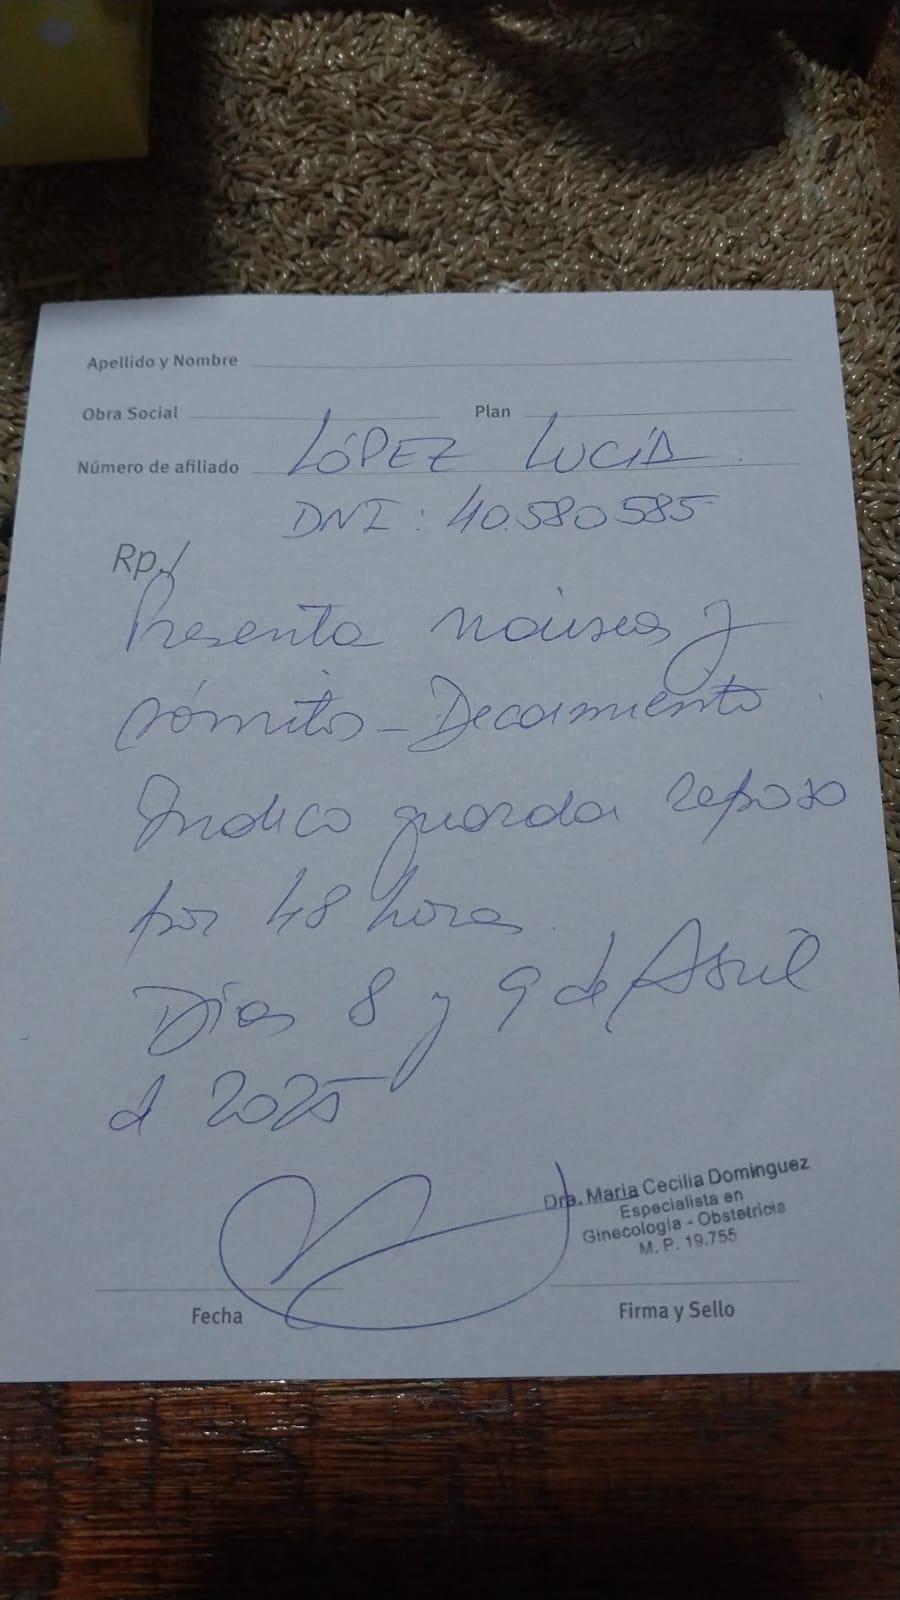 Apellido y Nombre
Obra Social Plan
Número de afiliado LÓPEZ LUCÍA
DNI: 40.580585
Rp./
Presenta náuseas y
vómitos - Decaimiento
Indico guardar reposo
por 48 horas.
Días 8 y 9 de Abril
de 2025
Dra. Maria Cecilia Dominguez
Especialista en
Ginecología - Obstetricia
M. P. 19.755
Fecha Firma y Sello